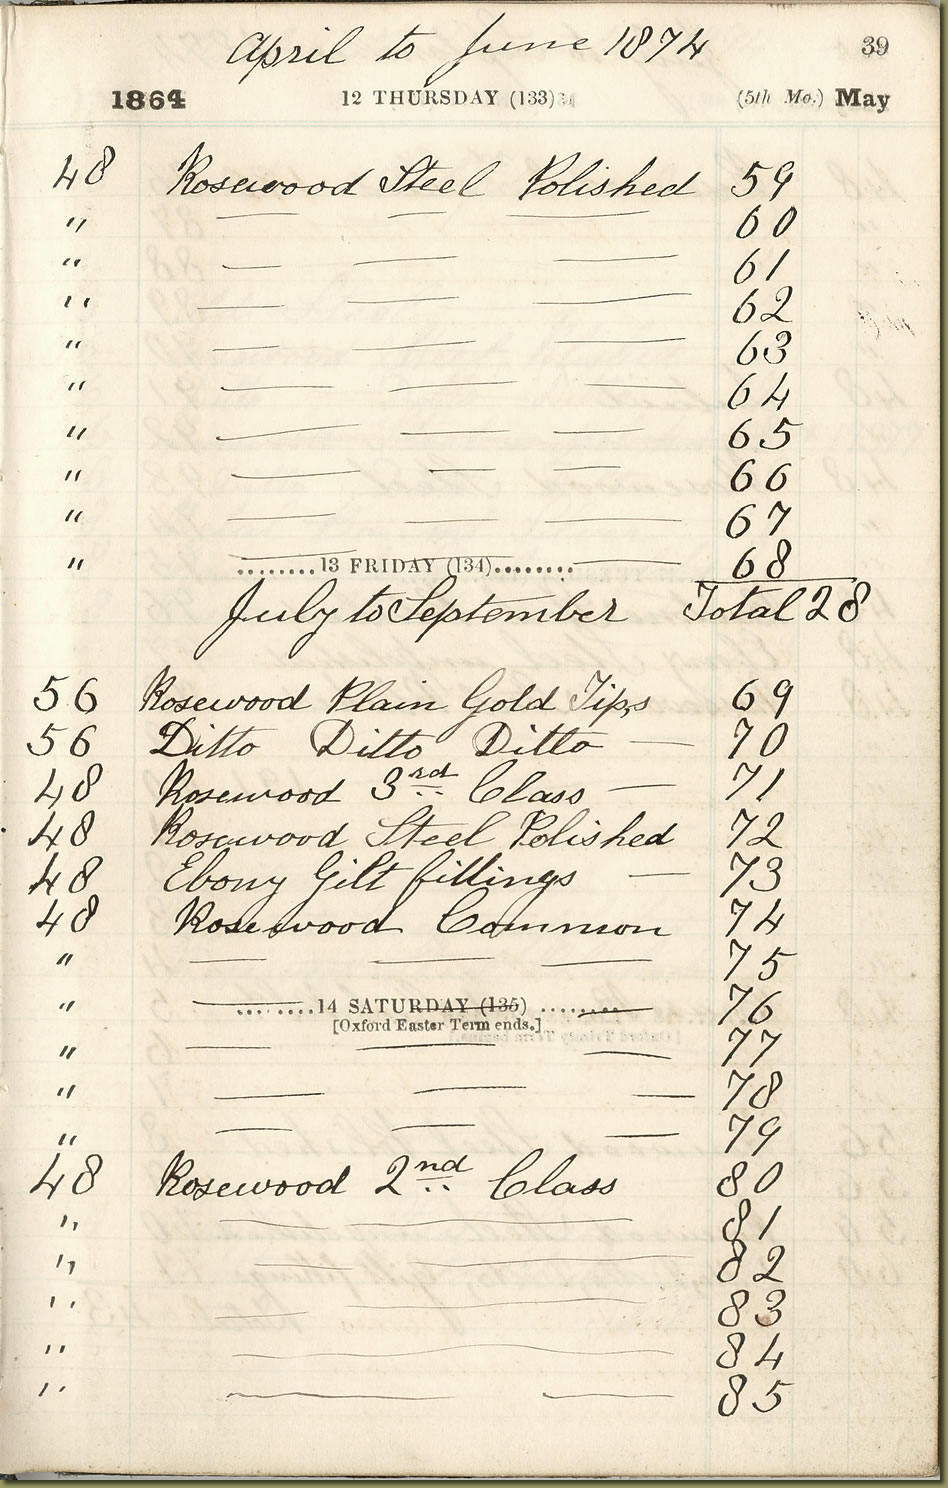 April to June 1874
39
1864 12 THURSDAY (133) (5th Mo.) May
48 Rosewood Steel Polished 59
" — — — 60
" — — — 61
" — — — 62
" — — — 63
" — — — 64
" — — — 65
" — — — 66
" — — — 67
" ........13 FRIDAY (134)........ — 68
July to September Total 28
56 Rosewood Plain Gold Tips 69
56 Ditto Ditto Ditto — 70
48 Rosewood 3rd Class — 71
48 Rosewood Steel Polished 72
48 Ebony Gilt fittings — 73
48 Rosewood Common 74
" — — — 75
" ........14 SATURDAY (135) ........ 76
[Oxford Easter Term ends.]
" — — — 77
" — — — 78
" — — — 79
48 Rosewood 2nd Class 80
" — — 81
" — — 82
" — — 83
" — — 84
" — — 85